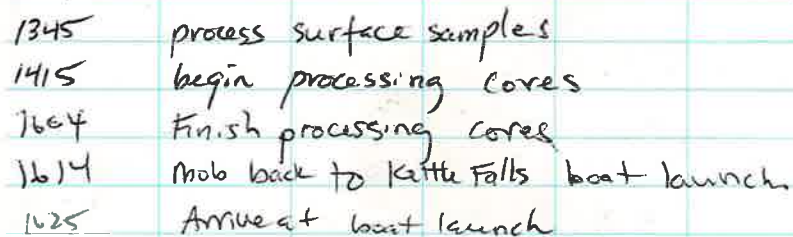 1345 process surface samples
1415 begin processing cores
1604 Finish processing cores
1614 Mob back to Kettle Falls boat launch
1625 Arrive at boat launch